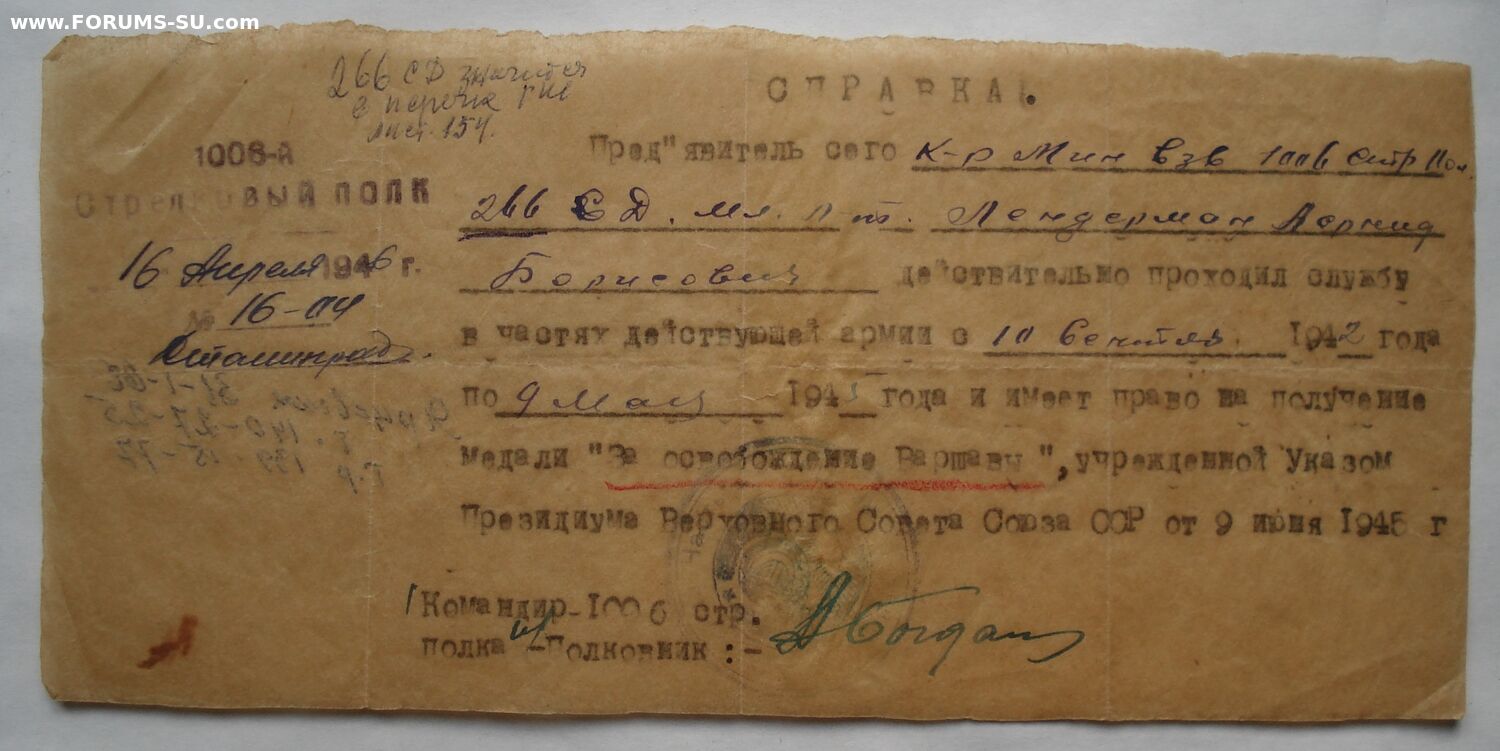 www.FORUMS-SU.com
266 СД значится
в перечне ГШ
лист. 154.
1006-й
Стрелковый полк
16 Апреля 1946 г.
№ 16-04
Сталинград.
СПРАВКА.
Пред"явитель сего К-р Мин взв 1006 стр Пол.
266 СД. Мл. Л-т. Лендерман Леонид
Борисович действительно проходил службу
в частях действующей армии с 10 Сентяб. 1942 года
по 9 Мая 1945 года и имеет право на получение
медали "За освобождение Варшавы", учрежденной Указом
Президиума Верховного Совета Союза ССР от 9 июня 1945 г
Командир-1006 стр.
полка -Полковник :-